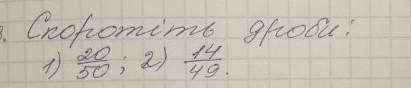 3. Скоротіть дроби:
1) 20/50; 2) 14/49.